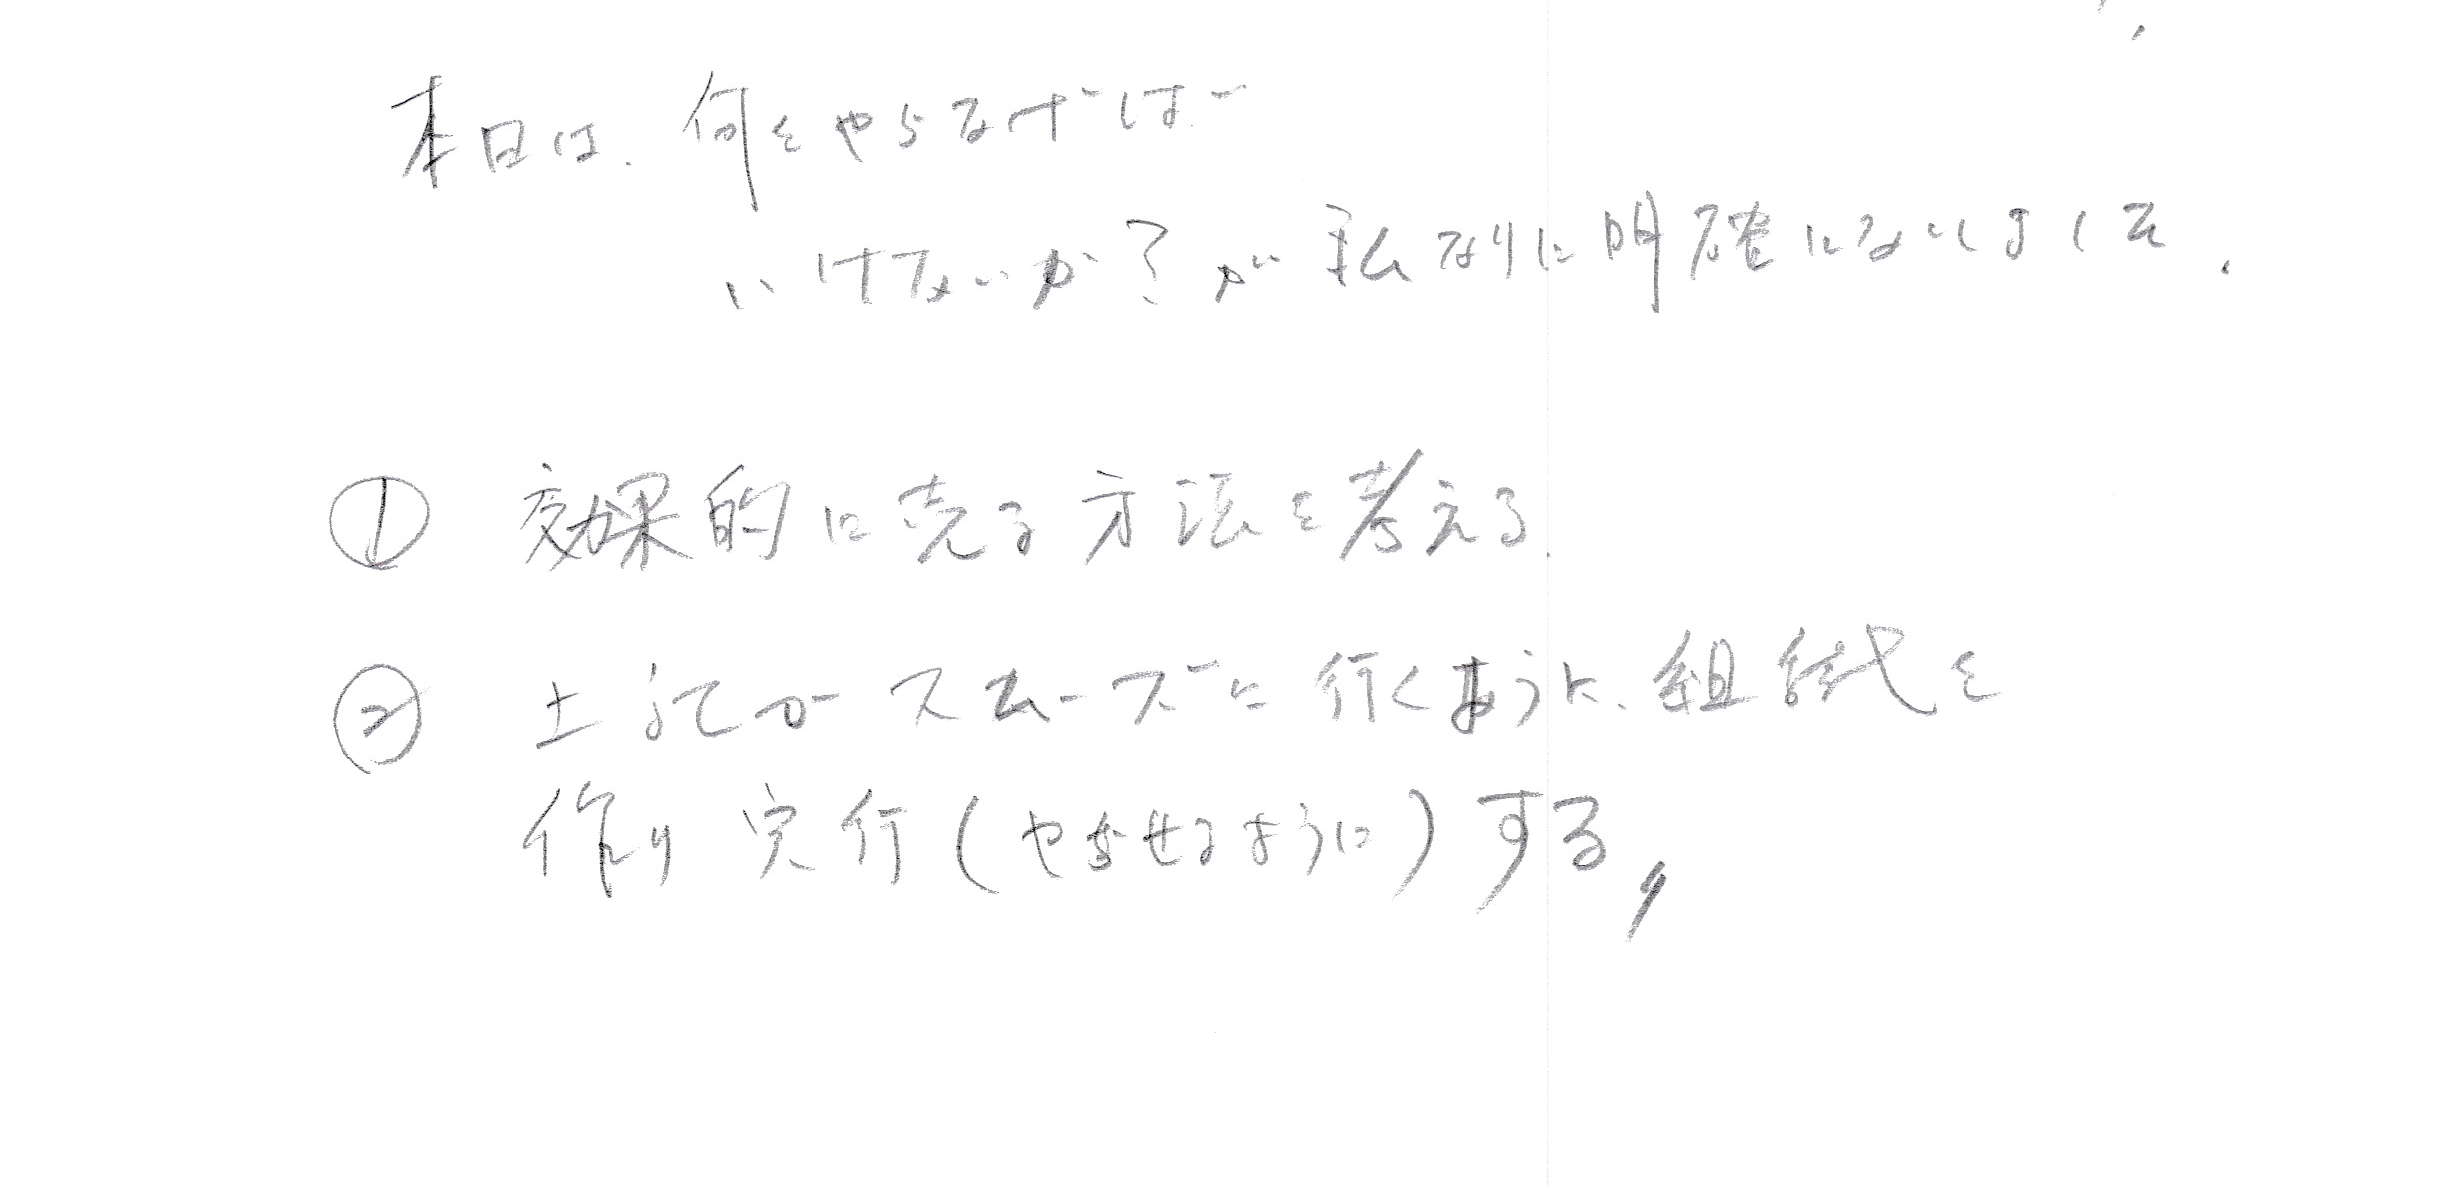 本日は、何をやらなければ
いけないか？が私なりに明確になりました。
① 効果的に売る方法を考える。
② 上記①がスムーズに行くように、組織を
作り実行(やらせるように)する,